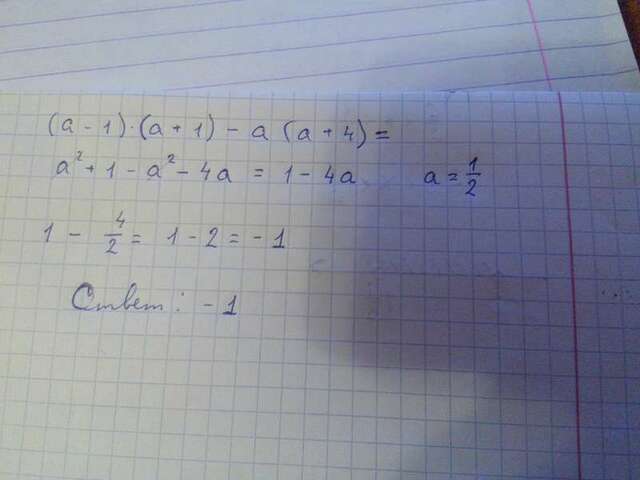 (a - 1)·(a + 1) - a (a + 4) =
a² + 1 - a² - 4a = 1 - 4a a = 1/2
1 - 4/2 = 1 - 2 = -1
Ответ: -1